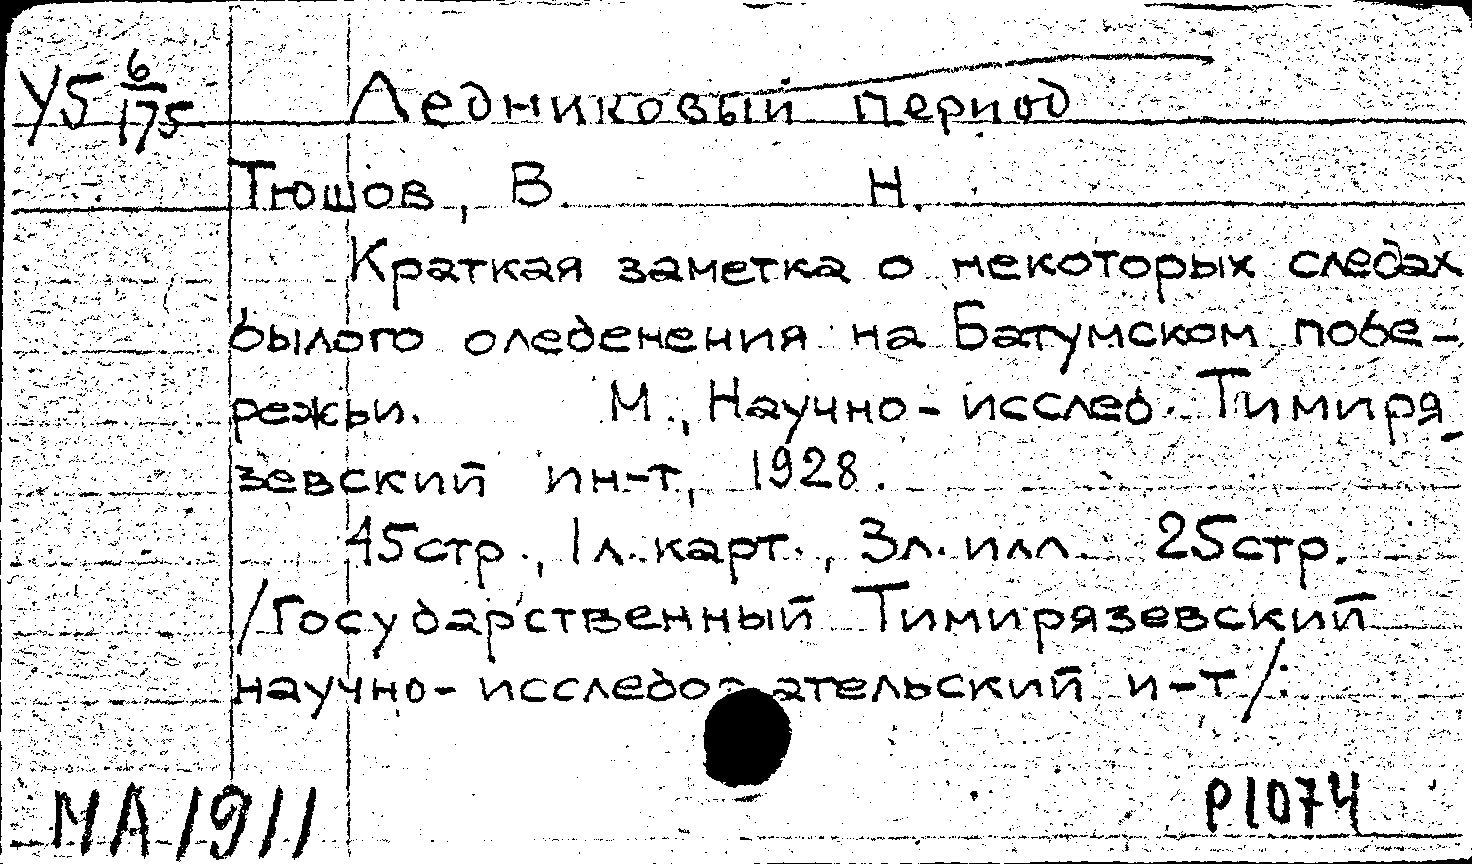 У5 6/175 Ледниковый период
Тюшов, В. Н.
Краткая заметка о некоторых следах
былого оледенения на Батумском побе-
режьи. М., Научно-исслед. Тимиря-
зевский ин-т, 1928.
45стр., 1л. карт., 3л. илл. 25стр.
/Государственный Тимирязевский
научно-исследовательский и-т/:
МА1911 Р1074